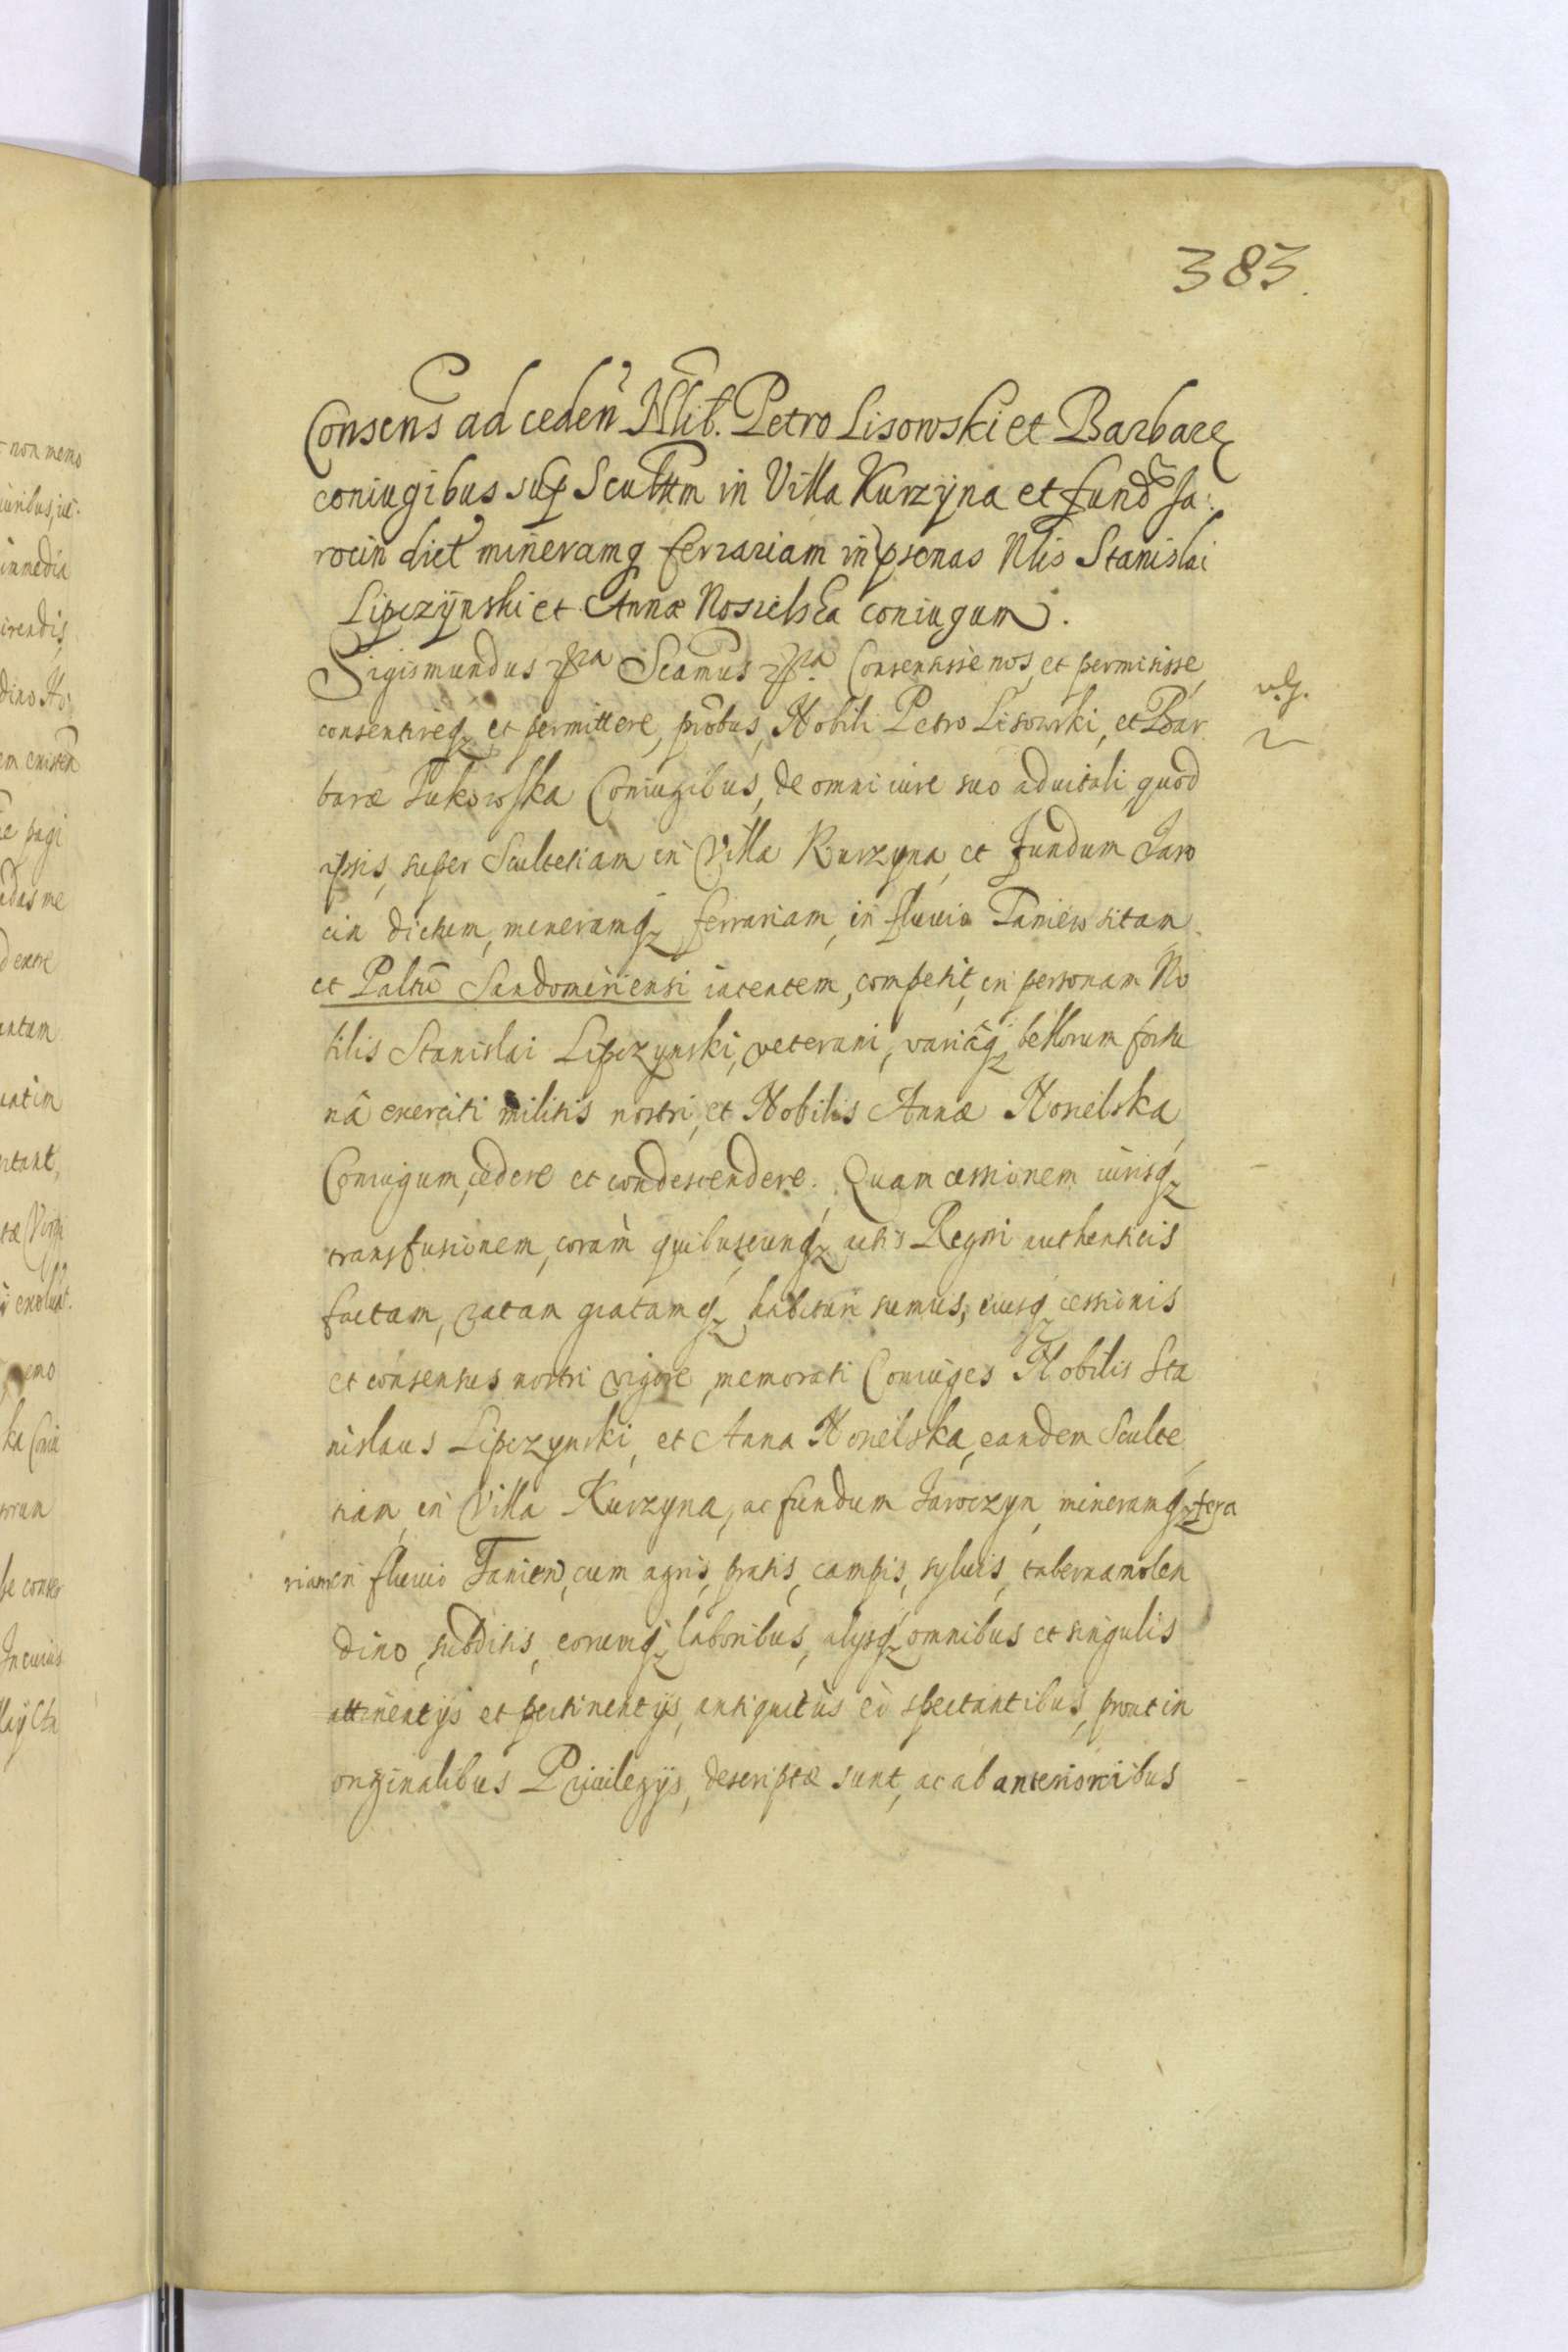 383.
Consens ad ceden Nlib. Petro Lisowski et Barbaræ
coniugibus sup Scultm in Villa Kurzÿna et fund Ja:
rocin dict mineramq ferrariam in psonas Nlis Stanislai
Lipczÿnski et Annæ Nosielska coniugum.
Sigismundus Scamus Consensisse nos, et permisisse,
consentireq et permittere, pntbus, Nobili Petro Lisowski, et Bar
baræ Lukowska Coniugibus, de omni iure suo aduitali, quod
ipsis, super Scultetiam in Villa Kurzyna, et fundum Jaro
cin dictum, mineramq ferrariam, in fluuio Taniew sitam
et Paltu Sandomiriensi iacentem, competit, in personam No
bilis Stanislai Lipczynski, veterani, variâq bellorum fortu
nâ exerciti militis nostri, et Nobilis Annæ Nosielska,
Coniugum, cedere et condescendere. Quam cessionem iurisq
transfusionem, coram quibuscunq actis Regni authenticis
factam, ratam gratamq habituri sumus, eiusq cessionis
et consensus nostri vigore, memorati Coniuges Nobilis Sta
nislaus Lipczynski, et Anna Nosielska, eandem Sculte
tiam, in Villa Kurzyna, ac fundum Jaroczyn, mineramq ferra
riam in fluuio Taniew, cum agris, pratis, campis, syluis, taberna molen
dino, subditis, eorumq laboribus, alysq omnibus et singulis
attinentÿs et pertinentÿs, antiquitùs eò spectantibus, prout in
originalibus Priuilegÿs, descriptæ sunt, ac ab anterioribus